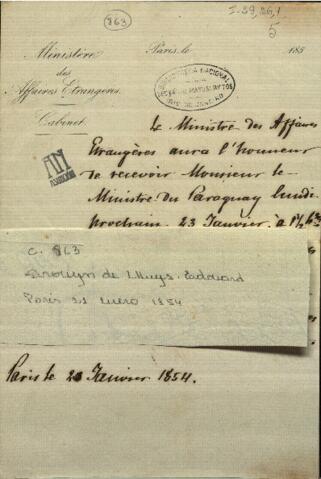 863
I-29,26,1
5
Ministère
des
Affaires Etrangères.
Cabinet.
Paris, le 185
BIBLIOTHECA NACIONAL
RIO DE JANEIRO
Le Ministre des Affaires
Etrangères aura l'honneur
de recevoir Monsieur le
Ministre du Paraguay lundi
prochain 23 Janvier, à 1½ h
C. 863
Drouyn de Lhuys. Edouard
Paris 21 enero 1854
Paris le 21 Janvier 1854.